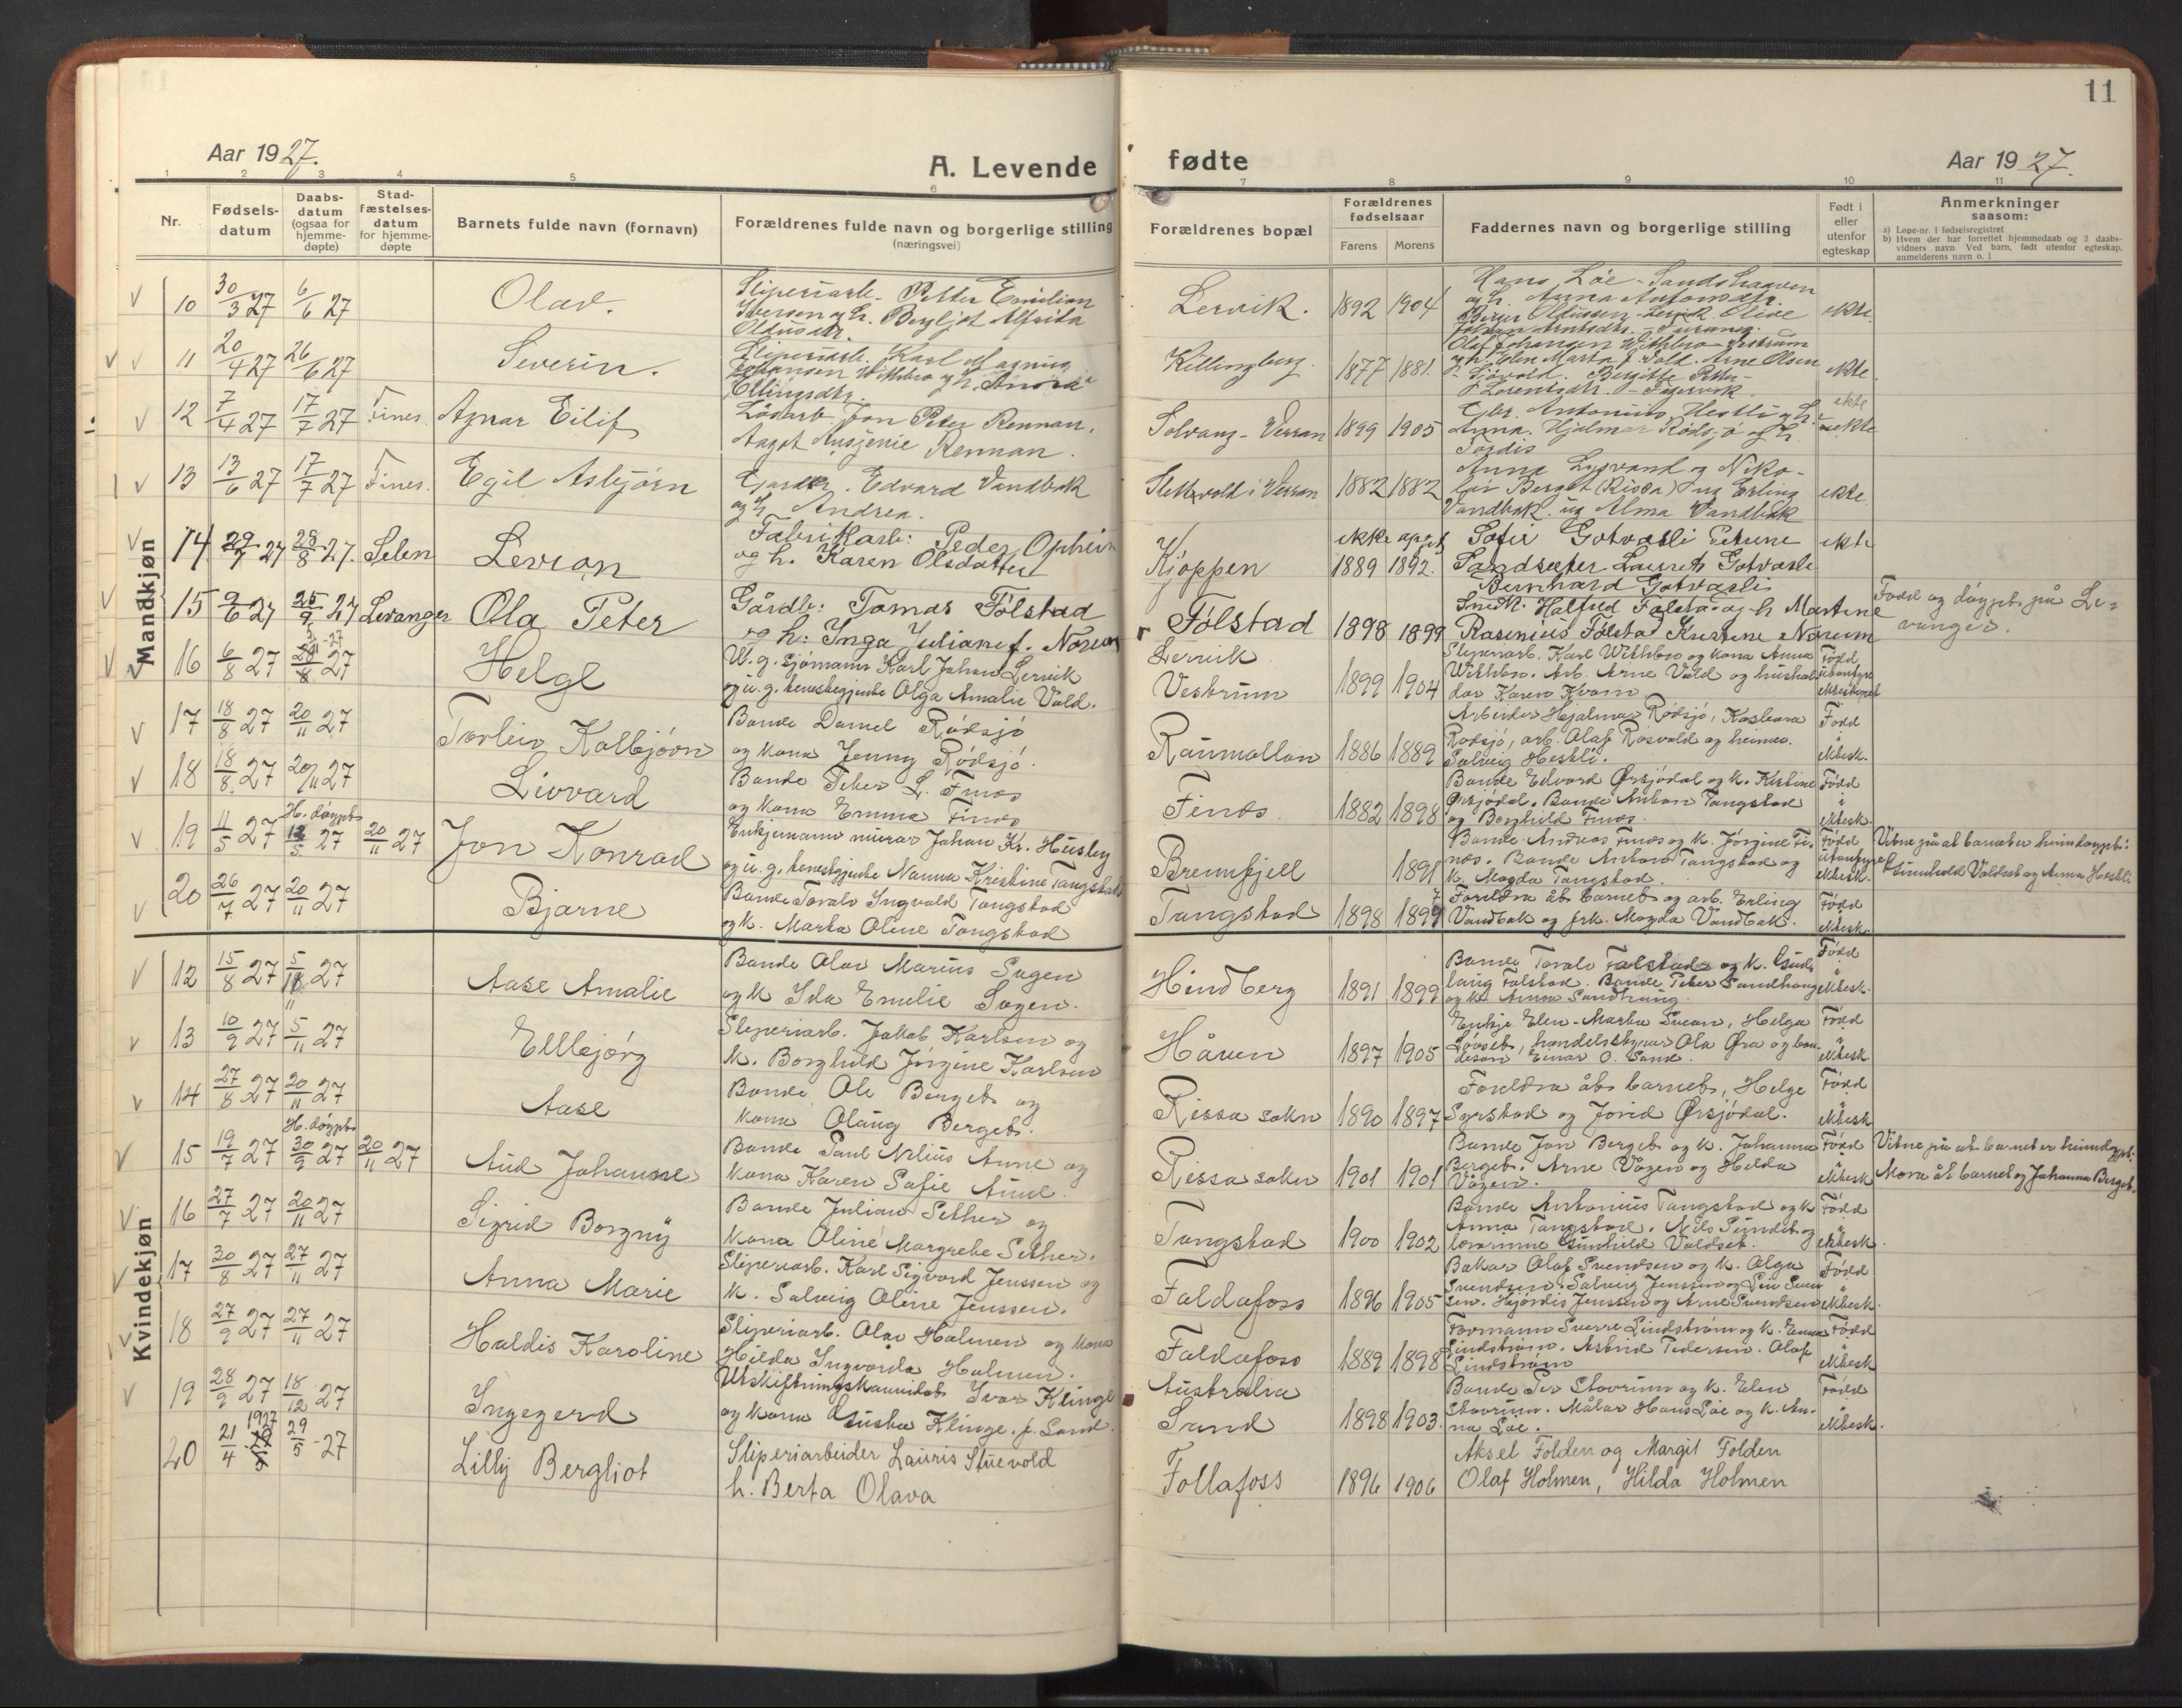 11
Aar 1927.
A. Levende fødte
Aar 1927.
1 2 3 4 5 6 7 8 9 10 11
Nr.
Fødsels-
datum
Daabs-
datum
(ogsaa for
hjemme-
døpte)
Stad-
fæstelses-
datum
for hjemme-
døpte
Barnets fulde navn (fornavn)
Forældrenes fulde navn og borgerlige stilling
(næringsvei)
Forældrenes bopæl
Forældrenes
fødselsaar
Farens Morens
Faddernes navn og borgerlige stilling
Født i
eller
utenfor
egteskap
Anmerkninger
saasom:
a) Løpe-nr. i fødselsregistret
b) Hvem der har forrettet hjemmedaab og 2 daabs-
vidners navn. Ved barn, født utenfor egteskap,
anmelderens navn o. l
Mandkjøn
10 30/3 27 6/6 27 Olav.
Sliperiarb. Petter Emilian
Iversen og h. Bergljot Alfrida
Oldusdtr.
Lervik. 1892 1904
Hans Løe - Sandshaugen
og h. Anna Antonsdtr.
Birger Oldussen - Lervik. Olive
ekte.
11 20/4 27 26/6 27 Severin.
Sliperiarb. Karl Magnus
Johansen Withbro og h. Anna
Ellingsdtr.
Killingberg. 1877 1881.
Olaf Johansen Withbro Vestrum
og h. Elen Marta f. Vold. Arne Olsen
ekte
12 7/4 27 17/7 27 Fines. Agnar Eilif
Løsarb. Jon Peter Rennan.
Aagot Ausjenie Rennan.
Solvang - Verran 1899 1905
Gbr. Antonius Hestli og h.
Anna. Hjalmar Rødsjø og h.
Tordis
ekte
13 13/6 27 17/7 27 Fines. Egil Asbjørn
Gaardbr. Edvard Vandbak
og h. Andrea.
Slettevold i Verran 1882 1882
Anna Lysvand og Niko-
lai Berget (Rissa) og Erling
Vandbak og Alma Vandbak
ekte
14 29/7 27 28/8 27. Selen Levron
Fabrikarb: Peder Opheim
og h. Karen Olsdatter
Kjøppen ekke apgit 1889 1892.
Sofie Gotvasli Petrine
Sandsæter Laurits Gotvasli
Bernhard Gotvasli
ekte
15 9/6 27 25/9 27 Levanger Ola Peter
Gårdb: Tomas Følstad
og h: Inga Juliane f. Norum
Følstad 1898 1899
Snedk. Halfred Følstad og h Martine
Rasenius Følstad Kirstine Norum
Fødd og døypt på Le-
vanger.
16 6/8 27 28/8 27 Helge
U. g. sjömann Karl Johan Lervik
og u. g. tenestegjente Olga Amalie Vold.
Lervik
Vestrum 1899 1904
Sliperiarb. Karl Withbro og kona Anna
Withbro. Arb. Arne Vold og hushal-
dar Karen Kvam.
Fødd
utanfyre
ekteskapet
17 18/8 27 20/11 27 Torleiv Kolbjørn
Bonde Daniel Rødsjø
og kona Jenny Rødsjø.
Raumollan 1886 1889
Arbeider Hjalmar Rødsjø, Kaspara
Rødsjø, arb. Olaf Rosvold og heimev.
Solveig Hestli.
Fødd
i
ektesk.
18 18/8 27 20/11 27 Liovard
Bonde Peter L. Finæs
og kona Emma Finæs
Finæs 1882 1898
Bonde Edvard Ørsjødal og k. Kristine
Ørsjødal. Bonde Anton Tangstad
og Borghild Finæs.
Fødd
i
ektesk.
19 11/5 27 H. døypt 12/5 27 20/11 27 Jon Konrad
Enkjemann murar Johan Kr. Husby
og u. g. tenestgjente Nanna Kristine Tangstad
Bremfjell 1891
Bonde Andreas Finæs og k. Jørgine Fi-
næs. Bonde Anton Tangstad og
k. Magda Tangstad.
Fødd
utanfyre
ektesk.
Vitne på at barnet er heimdøypt:
Gunhild Voldset og Anna Hestli
20 26/7 27 20/11 27 Bjarne
Bonde Torolv Ingvald Tangstad
og k. Marta Oline Tangstad
Tangstad 1898 1899
Foreldra åt barnet og arb. Erling
Vandbak og frk. Magda Vandbak.
Fødd
i
ektesk.
Kvindekjøn
12 15/8 27 5/11 27 Aase Amalie
Bonde Olav Marius Sagen
og k Ida Emelie Sagen.
Hindberg 1891 1899
Bonde Torolv Falstad og k. Gud-
laug Falstad. Bonde Peter Sandhaug
og k. Anna Sandhaug.
Fødd
i
ektesk.
13 10/9 27 5/11 27 Ellbjørg
Sliperiarb. Jakob Karlsen og
k. Borghild Jørgine Karlsen
Håven 1897 1905
Enkje Elen-Marta Svean, Helga
Løvset, handelsstyrar Ola Øra og bon-
deson Einar O. Sand.
Fødd
i
ektesk.
14 27/8 27 20/11 27 Aase
Bonde Ole Berget og
kona Olaug Berget.
Rissa sokn 1890 1897
Foreldra åt barnet, Helge
Syrstad og Jorid Ørsjødal.
Fødd
i
ektesk
15 19/7 27 H. døypt 30/9 27 20/11 27 Aud Johanne
Bonde Paul Nilius Aune og
kona Karen Sofie Aune.
Rissa sokn 1901 1901
Bonde Jon Berget og k. Johanna
Berget. Arne Vågen og Helda
Vågen.
Fødd
i
ektesk
Vitne på at barnet er heimdøypt.
Mora åt barnet og Johanna Berget.
16 27/7 27 20/11 27 Sigrid Borgny
Bonde Julian Sether og
kona Oline Margrete Sether.
Tangstad 1900 1902
Bonde Antonius Tangstad og k
Anna Tangstad. Nils Sundet og
lærarinne Gunhild Voldset.
Fødd
i
ektesk.
17 30/8 27 27/11 27 Anna Marie
Sliperiarb. Karl Sigvard Jenssen og
k. Solveig Oline Jenssen.
Foldafoss 1896 1905
Bakar Olaf Svendsen og k. Olga
Svendsen. Solveig Jenssen og Liv Svend-
sen. Hjørdis Jenssen og Arne Svendsen
Fødd
i
ektesk.
18 27/9 27 27/11 27 Haldis Karoline
Sliperiarb. Olav Holmen og kona
Hilda Ingvarda Holmen.
Foldafoss 1889 1898
Formann Sverre Lindstrøm og k. Emma
Lindstrøm. Astrid Pedersen. Olaf
Lindstrøm
Fødd
i
ektesk
19 28/9 27 18/12 27 Ingegerd
Utskiftningskandidat Ivar Klinge
og kona Gusta Klinge. f. Sand.
Australia
Sund 1898 1903.
Bonde Per Stavrum og k. Elen
Stavrum. Målar Hans Løe og k. An-
na Løe.
Fødd
i
ektesk.
20 21/4 1927 29/5 - 27 Lilly Bergliot
Sliperiarbeider Lauris Stuevold
h. Berta Olava
Follafoss 1896 1906
Aksel Folden og Margit Folden
Olaf Holmen, Hilda Holmen